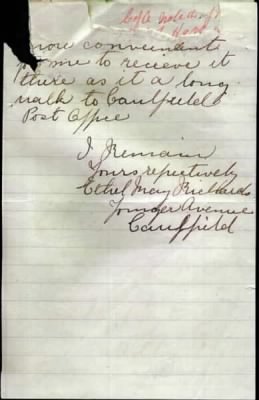 more convenient
to me to recieve it
there as it a long
walk to Caulfield
Post Office
I Remain
Yours respectively
Ethel May Richards
Younger Avenue
Caulfield